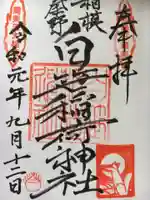 奉拝
相模
秦野
白笹稲荷神社
令和元年九月十二日